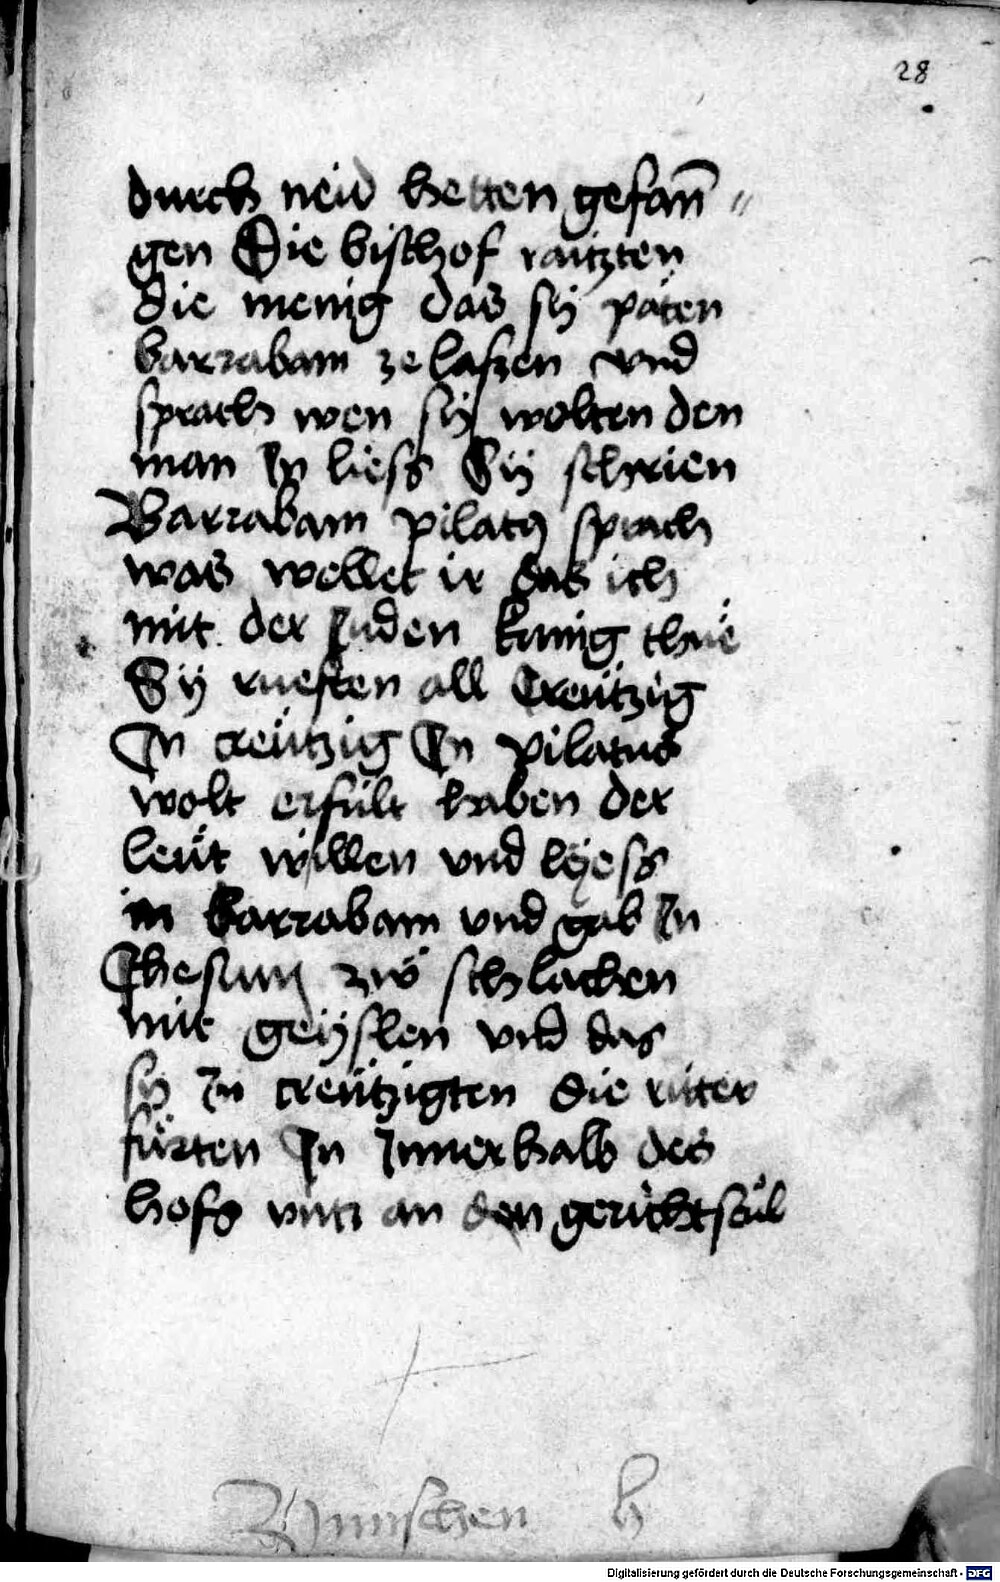 28
durch neid hetten gefan̄〃
gen Die bischof raitzten
die menig das sÿ päten
barrabam ze laszen vnd
sprach wen sÿ wolten den
man In liess Sÿ schrien
Barrabam pilatꝯ sprach
was wellet ir das ich
mit der Juden kunig thuë
Sÿ rueften all Creützig
In creützig In pilatus
wolt erfült haben der
leüt willen vnd lÿess
in barrabam vnd gab In
Jhesum zuo schlachen
mit geÿslen vnd das
sÿ In creützigten die ritter
fürten In Innerhalb des
hofs vntz an den gerichtsäul
schen
Digitalisierung gefördert durch die Deutsche Forschungsgemeinschaft - DFG